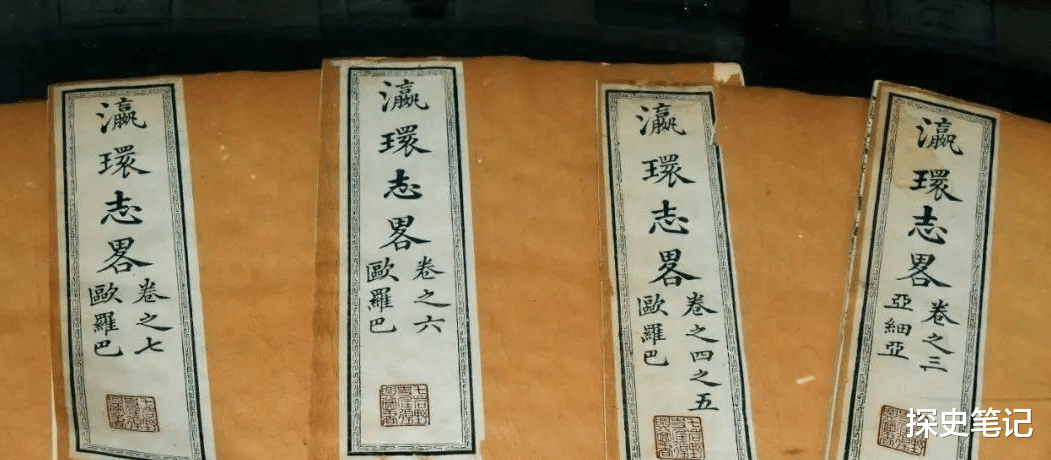 瀛環志畧
卷之三
亞細亞
瀛環志畧
卷之四之五
歐羅巴
瀛環志畧
卷之六
歐羅巴
瀛環志畧
卷之七
歐羅巴
探史笔记